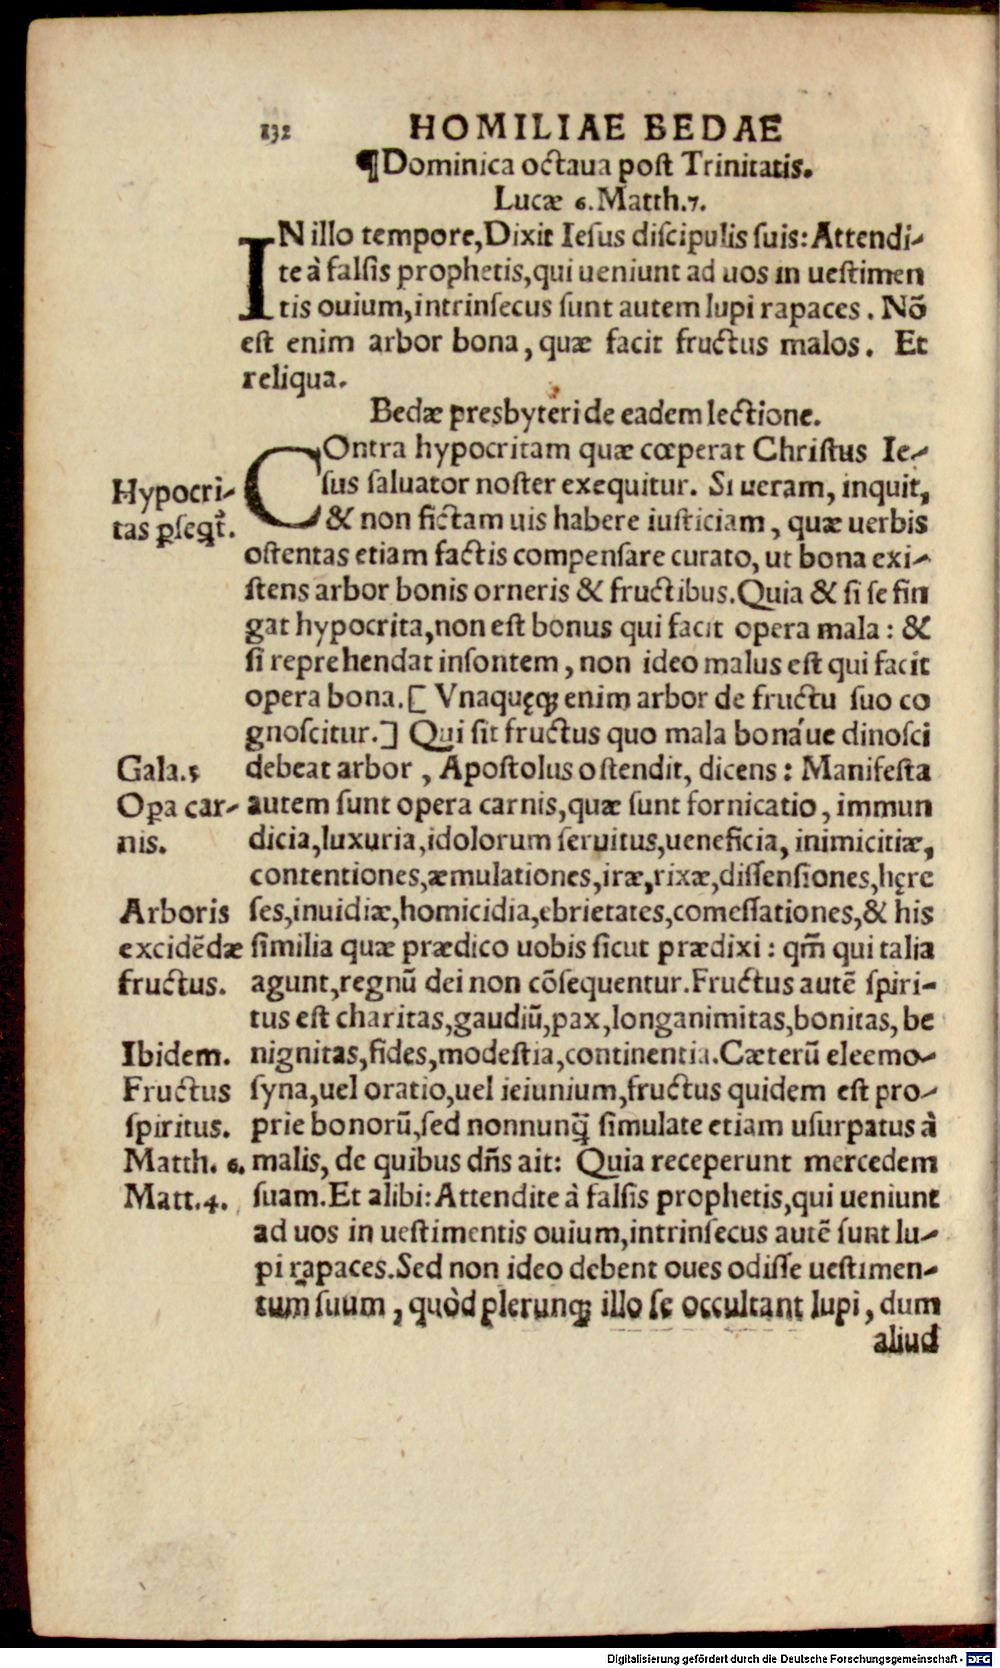 132 HOMILIAE BEDAE
¶Dominica octaua post Trinitatis.
Lucæ 6. Matth.7.
IN illo tempore, Dixit Iesus discipulis suis: Attendi-
te à falsis prophetis, qui ueniunt ad uos in uestimen
tis ouium, intrinsecus sunt autem lupi rapaces. Nō
est enim arbor bona, quæ facit fructus malos. Et
reliqua.
Bedæ presbyteri de eadem lectione.
Hypocri-
tas ꝑseqt̃.
COntra hypocritam quæ cœperat Christus Ie-
sus saluator noster exequitur. Si ueram, inquit,
& non fictam uis habere iusticiam, quæ uerbis
ostentas etiam factis compensare curato, ut bona exi-
stens arbor bonis orneris & fructibus. Quia & si se fin
gat hypocrita, non est bonus qui facit opera mala: &
si reprehendat insontem, non ideo malus est qui facit
opera bona. [ Vnaquęq; enim arbor de fructu suo co
gnoscitur.] Qui sit fructus quo mala bonáue dinosci
Gala.5
debeat arbor, Apostolus ostendit, dicens: Manifesta
Oꝑa car-
nis.
autem sunt opera carnis, quæ sunt fornicatio, immun
dicia, luxuria, idolorum seruitus, ueneficia, inimicitiæ,
contentiones, æmulationes, iræ, rixæ, dissensiones, hęre
Arboris
excidēdæ
fructus.
ses, inuidiæ, homicidia, ebrietates, comessationes, & his
similia quæ prædico uobis sicut prædixi: qm̃ qui talia
agunt, regnū dei non cōsequentur. Fructus autē spiri-
tus est charitas, gaudiū, pax, longanimitas, bonitas, be
Ibidem.
Fructus
spiritus.
nignitas, fides, modestia, continentia. Cæterū eleemo-
syna, uel oratio, uel ieiunium, fructus quidem est pro-
prie bonorū, sed nonnunq̃ simulate etiam usurpatus à
Matth. 6.
malis, de quibus dñs ait: Quia receperunt mercedem
Matt.4.
suam. Et alibi: Attendite à falsis prophetis, qui ueniunt
ad uos in uestimentis ouium, intrinsecus autē sunt lu-
pi rapaces. Sed non ideo debent oues odisse uestimen-
tum suum, quòd plerunq; illo se occultant lupi, dum
aliud
Digitalisierung gefördert durch die Deutsche Forschungsgemeinschaft - DFG